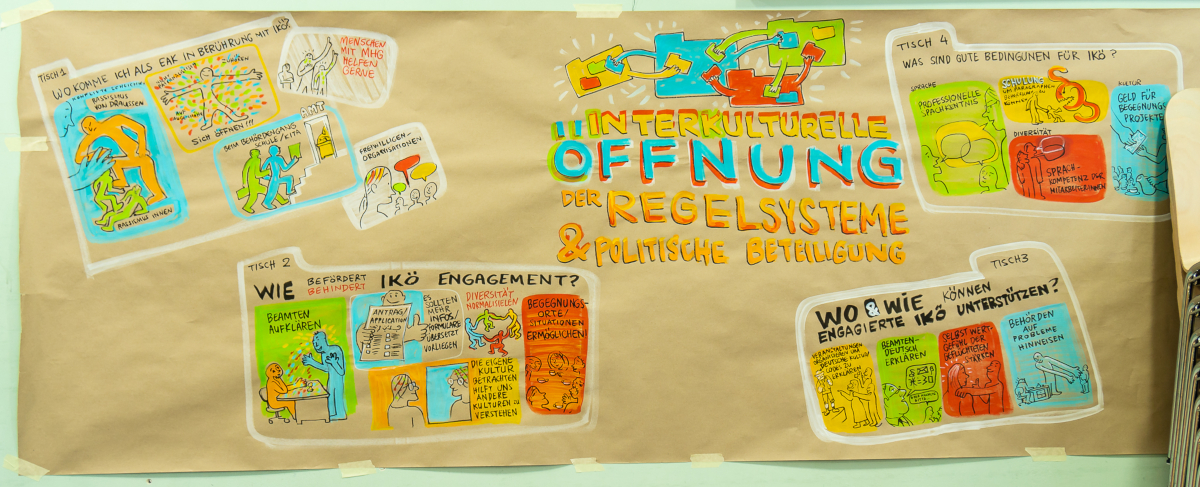 INTERKULTURELLE
ÖFFNUNG
DER REGELSYSTEME
& POLITISCHE BETEILIGUNG
TISCH 1
WO KOMME ICH ALS EAK IN BERÜHRUNG MIT IKÖ?
RASSISMUS
VON DRAUSSEN
RASSISMUS INNEN
SICH ÖFFNEN!!!
MENSCHEN
MIT MHG
HELFEN
GERNE
BEIM BEHÖRDENGANG
SCHULE/KITA
AMT
FREIWILLIGEN-
ORGANISATIONEN
TISCH 2
WIE BEFÖRDERT
BEHINDERT
IKÖ ENGAGEMENT?
BEAMTEN
AUFKLÄREN
ANTRAG/
APPLICATION
ES
SOLLTEN
MEHR
INFOS/
FORMULARE
ÜBERSETZT
VORLIEGEN
DIVERSITÄT
NORMALISIELEN
DIE EIGENE
KULTUR
BETRACHTEN
HILFT UNS
ANDERE
KULTUREN ZU
VERSTEHEN
BEGEGNUNGS-
ORTE/
SITUATIONEN
ERMÖGLICHEN
TISCH3
WO & WIE KÖNNEN
ENGAGIERTE IKÖ UNTERSTÜTZEN?
VERANSTALTUNGEN
ORGANISIEREN UM
DEUTSCHE KULTUR/
CODES ZU
ERKLÄREN
BEAMTEN-
DEUTSCH
ERKLÄREN
SELBSTWERT-
GEFÜHL DER
GEFLÜCHTETEN
STÄRKEN
BEHÖRDEN
AUF
PROBLEME
HINWEISEN
TISCH 4
WAS SIND GUTE BEDINGUNEN FÜR IKÖ?
SPRACHE
PROFESSIONELLE
SPACHKENTNIS
SCHULUNG
UM PARAGRAPHEN-
KOMMEN
DIVERSITÄT
SPRACH-
KOMPETENZ DER
MITARBEITER:INNEN
KULTUR
GELD FÜR
BEGEGNUNGS
PROJEKTE